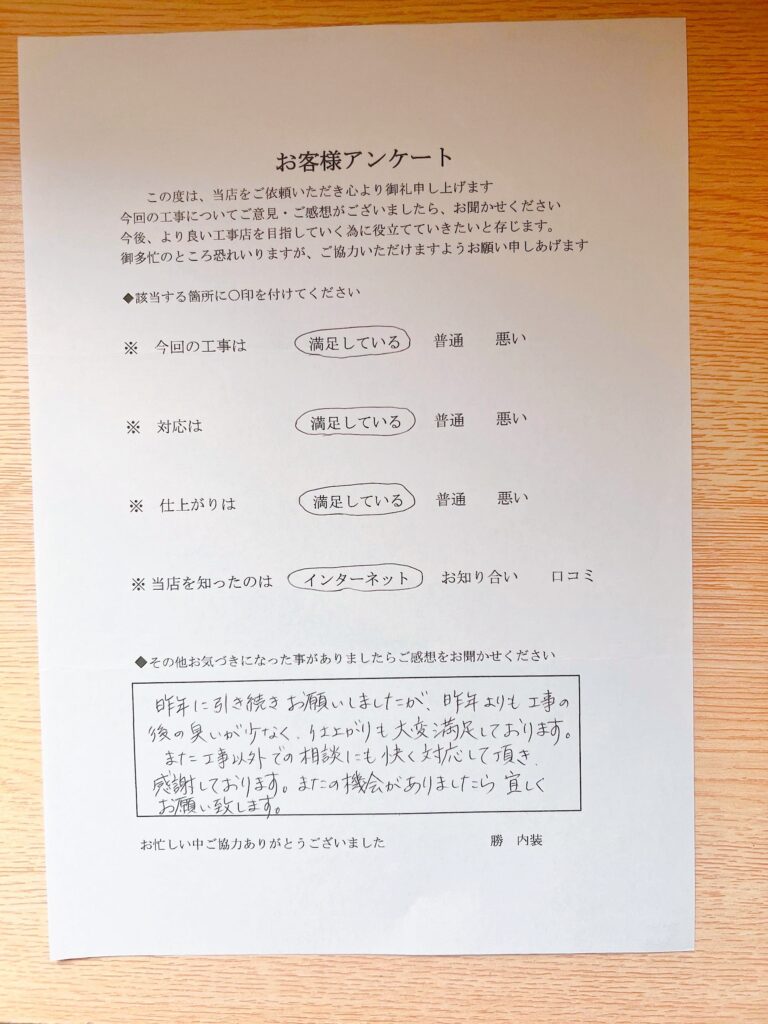 お客様アンケート
この度は、当店をご依頼いただき心より御礼申し上げます
今回の工事についてご意見・ご感想がございましたら、お聞かせください
今後、より良い工事店を目指していく為に役立てていきたいと存じます。
御多忙のところ恐れいりますが、ご協力いただけますようお願い申しあげます
◆該当する箇所に〇印を付けてください
※ 今回の工事は 満足している 普通 悪い
※ 対応は 満足している 普通 悪い
※ 仕上がりは 満足している 普通 悪い
※ 当店を知ったのは インターネット お知り合い 口コミ
◆その他お気づきになった事がありましたらご感想をお聞かせください
昨年に引き続きお願いしましたが、昨年よりも工事の
後の臭いが少なく、仕上がりも大変満足しております。
また工事以外での相談にも快く対応して頂き、
感謝しております。またの機会がありましたら宜しく
お願い致します。
お忙しい中ご協力ありがとうございました 勝 内装